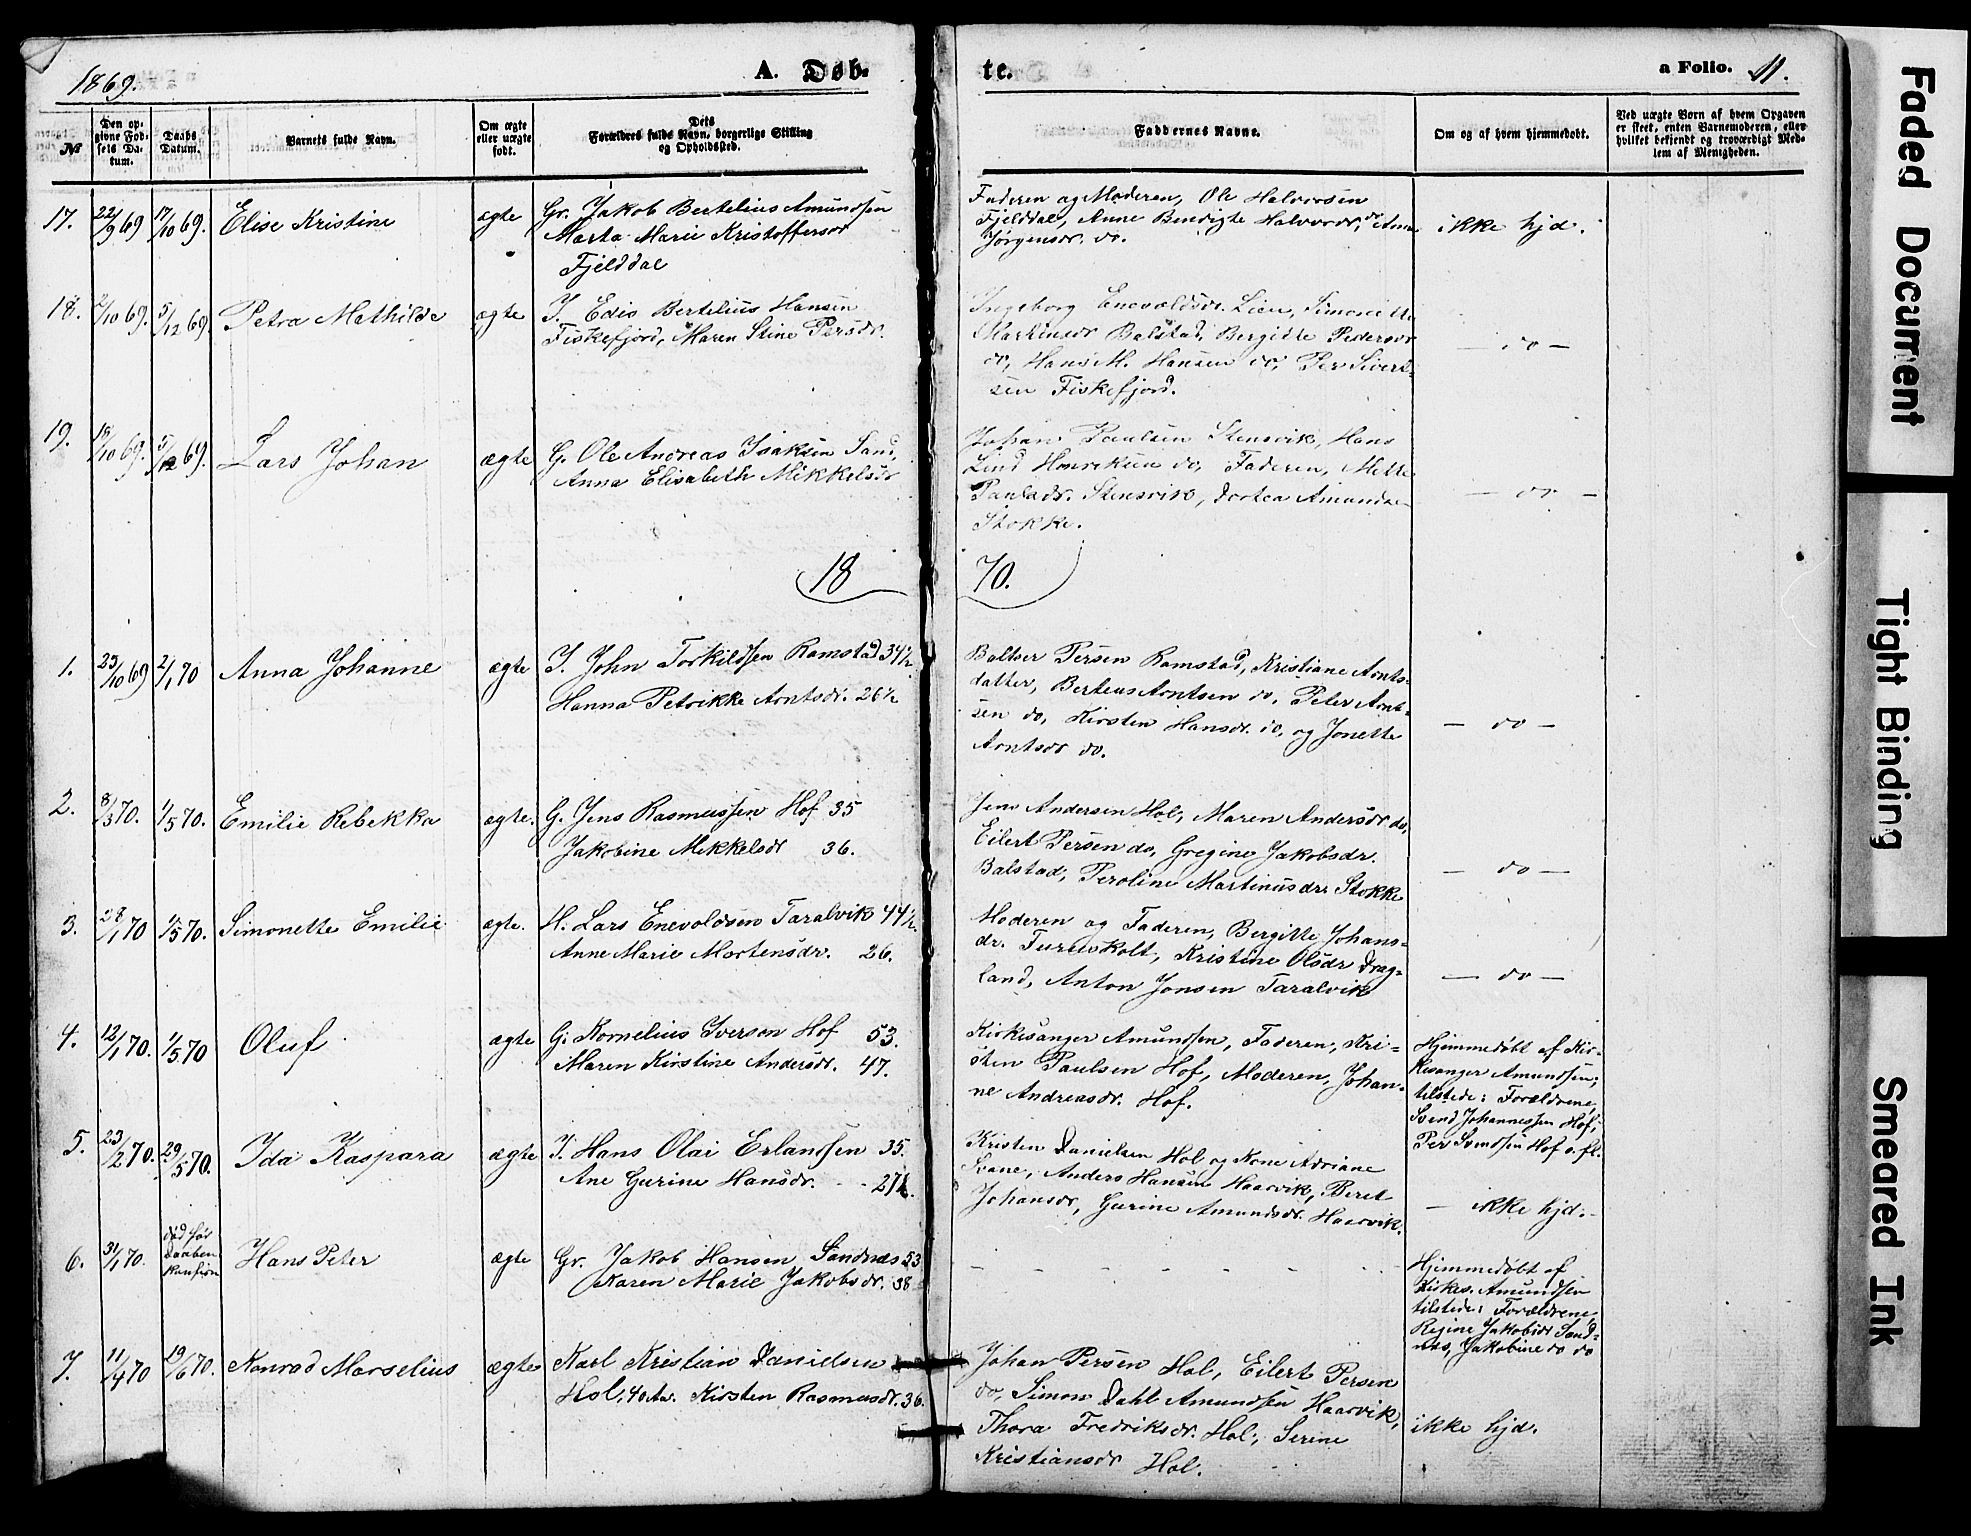 1869.
A. Døb-
te.
a Folio. 11.
№
Den op-
givne Fød-
sels Da-
tum.
Daabs
Datum.
Barnets fulde Navn.
Om ægte
eller uægte
født.
Dets
Forældres fulde Navn, borgerlige Stilling
og Opholdssted.
Faddernes Navne.
Om og af hvem hjemmedøbt.
Ved uægte Børn af hvem Opgaven
er skeet, enten Barnemoderen, eller
hvilket bekjendt og troværdigt Med-
lem af Menigheden.
17. 22/9 69 17/10 69. Elise Kristine ægte
Gr. Jakob Bertelius Amundsen
Marta Marie Kristoffersdr
Fjelddal
Faderen og Moderen, Ole Halvorsen
Fjelddal, Anne Bendigte Halvordr. do, Anne
Jørgensdr. do.
ikke hjd.
18. 2/10 69. 5/12 69. Petra Mathilde ægte
I. Edis Bertelius Hansen
Fiskefjord, Maren Stine Persdr.
Ingeborg Enevoldsdr. Lien, Simonette
Martinsdr Balstad, Bergitte Pedersdr
do, Hans M. Hansen do, Per Sivert-
sen Fiskefjord.
— do —
19. 19/10 69. 5/12 69. Lars Johan ægte
G. Ole Andreas Isaksen Sand,
Anna Elisabeth Mikkelsdr
Johan Paulsen Stensvik, Hans
Lind Henriksen do, Faderen, Mette
Paulsdr. Stensvik, Dortea Amundsdr
Stokke.
— do —
18 70.
1. 25/10 69 2/1 70 Anna Johanne ægte
I. John Torkildsen Ramstad 34½
Hanna Petrikke Arntsdr. 26½
Baltser Persen Ramstad, Kristiane Arnts-
datter, Berteus Arntsen do, Peter Arnt-
sen do, Kirsten Hansdr. do, og Jonette
Arntsdr do.
— do —
2. 8/3 70. 1/5 70. Emilie Rebekka ægte.
G. Jens Rasmussen Hof 35
Jakobine Mikkelsdr 36.
Jens Andersen Hol, Maren Andersdr do,
Eilert Persen do, Gregine Jakobsdr.
Balstad, Peroline Martinusdr Stokke
— do —
3. 28/1 70 1/5 70. Simonette Emilie ægte.
H. Lars Enevoldsen Taralvik 44½
Anne Marie Mortensdr. 26.
Moderen og Faderen, Bergitte Johans-
dr. Furuskolt, Kristine Olsdr Drag-
land, Anton Jonsen Taralvik
— do —
4. 12/1 70. 1/5 70 Oluf ægte
G. Kornelius Iverson Hof 53.
Maren Kirstine Andersdr. 47.
Kirkesanger Amundsen, Faderen, Kri-
sten Paulsen Hof, Moderen, Johan-
ne Andreasdr. Hof.
Hjemmedøbt af Kir-
kesanger Amundsen;
tilstede: Forældrene,
Svend Johannessen Hof,
Per Svendsen Hof o.fl.
5. 23/2 70. 29/5 70. Ida Kaspara ægte
I. Hans Olai Erlandsen 35.
Ane Gurine Hansdr. - - 27½.
Kristen Danielsen Hol og Kone Adriane
Svane, Anders Hansen Haarvik, Beret
Johansdr, Gurine Amundsdr. Haarvik.
— ikke hjd. -
6. 31/1 70. død før
Daaben
Hans Peter ægte
Gr. Jakob Hansen Sandnæs 53
Karen Marie Jakobsdr. 38
- - - - - - -
Hjemmedøbt af
Kirkes. Amundsen
tilstede: Forældrene,
Regine Jakobsdr Sand-
næs, Jakobine do do
7. 11/4 70 19/6 70. Konrad Marselius ægte
Karl Kristian Danielsen
Hol, 40 Aar. Kirsten Rasmusdr. 36.
Johan Persen Hol, Eilert Persen
do, Simon Dahl Amundsen Haarvik,
Thora Fredriksdr. Hol, Serine
Kristiansdr Hol.
ikke hjd.
Faded Document
Tight Binding
Smeared Ink